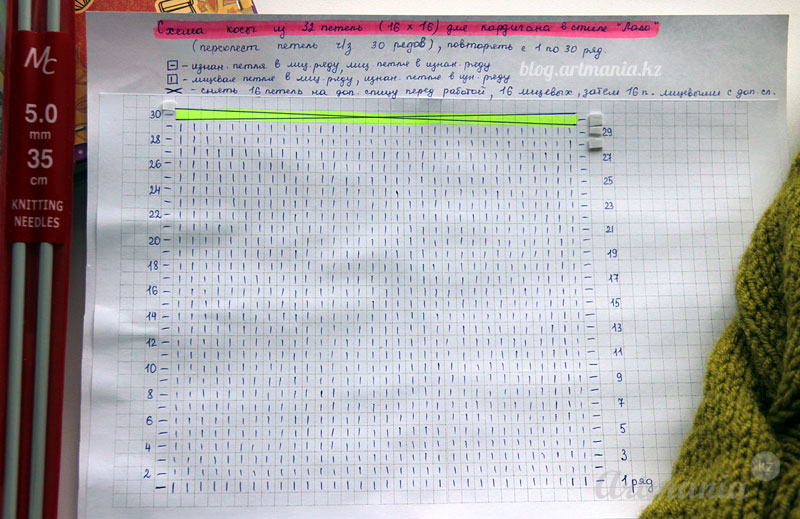 Схема косы из 32 петель (16 x 16) для кардигана в стиле "Лало"
(перехлест петель ч/з 30 рядов), повторять с 1 по 30 ряд.
- изнан. петля в лиц. ряду, лиц. петля в изнан. ряду
- лицевая петля в лиц. ряду, изнан. петля в изн. ряду
- снять 16 петель на доп. спицу перед работой, 16 лицевых, затем 16 п. лицевыми с доп. сп.
blog.artmania.kz
MC
5.0
mm
35
cm
KNITTING
NEEDLES
30
29
28
27
26
25
24
23
22
21
20
19
18
17
16
15
14
13
12
11
10
9
8
7
6
5
4
3
2
1 ряд
Artmania.kz